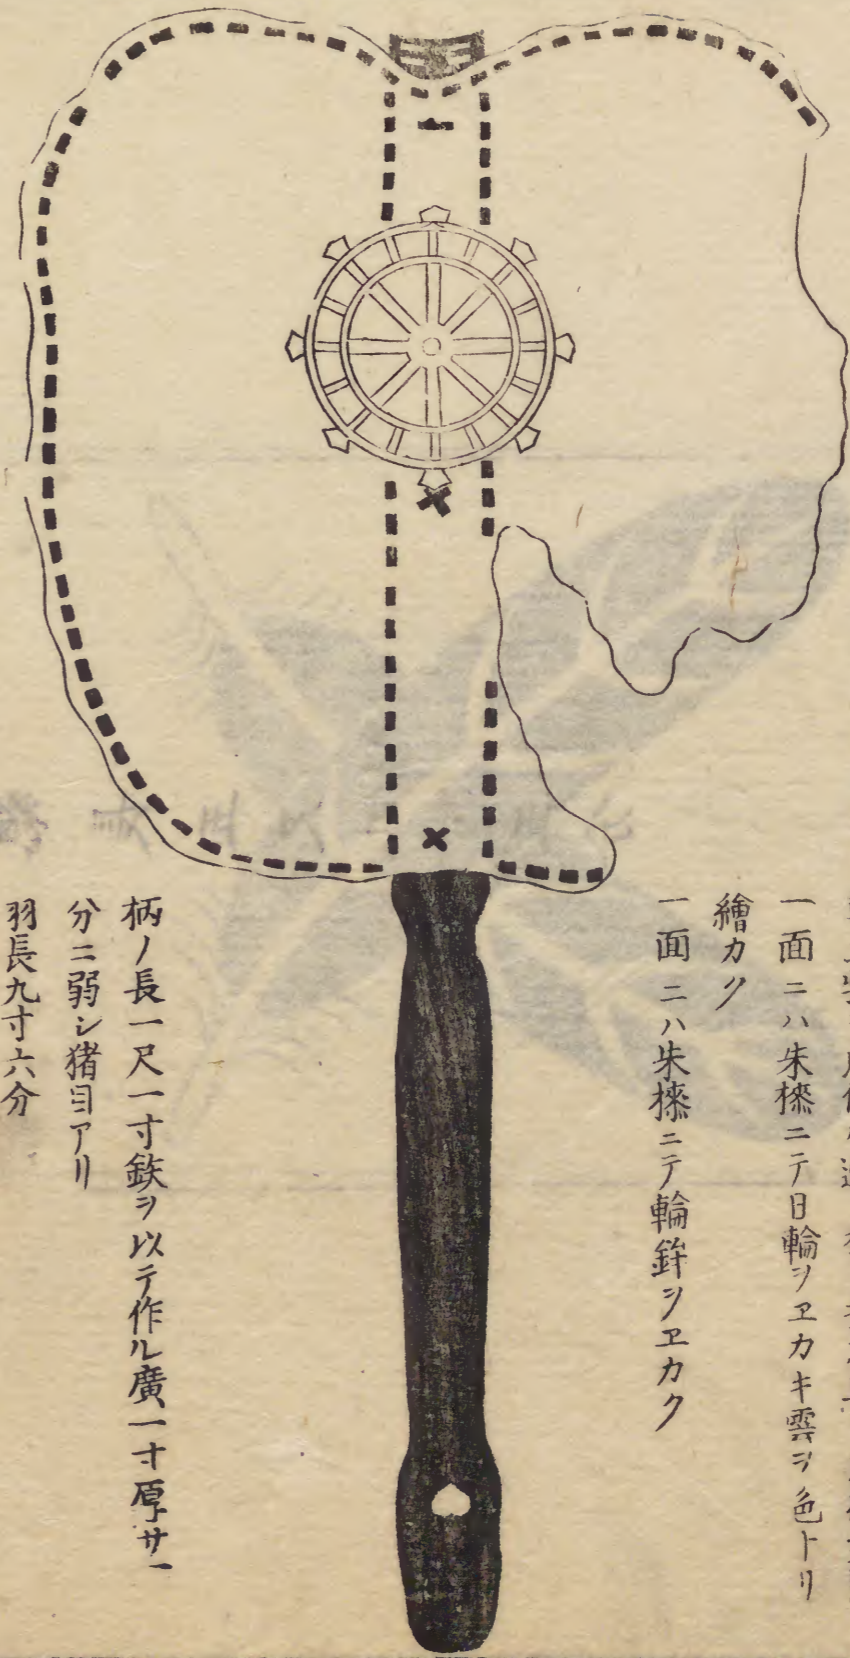 一面ニハ朱㯃ニテ日輪ヲヱカキ雲ヲ色トリ
繪カク
一面ニハ朱㯃ニテ輪鉾ヲヱカク
柄ノ長一尺一寸鉄ヲ以テ作ル廣一寸厚サ一
分ニ弱シ猪目アリ
羽長九寸六分